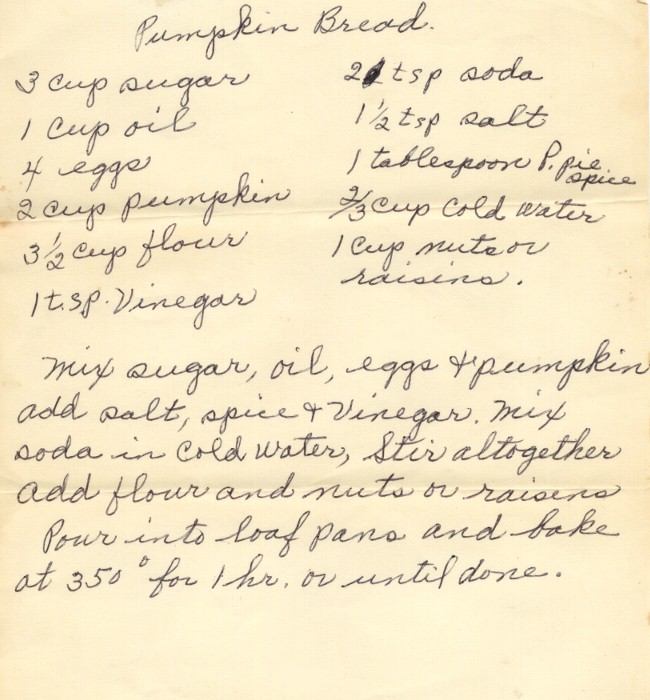 Pumpkin Bread.
3 cup sugar
1 cup oil
4 eggs
2 cup pumpkin
3 1/2 cup flour
1 tsp. Vinegar
2 tsp soda
1 1/2 tsp salt
1 tablespoon P. pie
spice
2/3 cup cold water
1 cup nuts or
raisins.
Mix sugar, oil, eggs & pumpkin
add salt, spice & Vinegar. Mix
soda in cold water, Stir altogether
add flour and nuts or raisins
Pour into loaf pans and bake
at 350° for 1 hr. or until done.